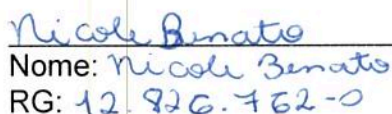 Nicole Benato
Nome: Nicole Benato
RG: 12.826.762-0